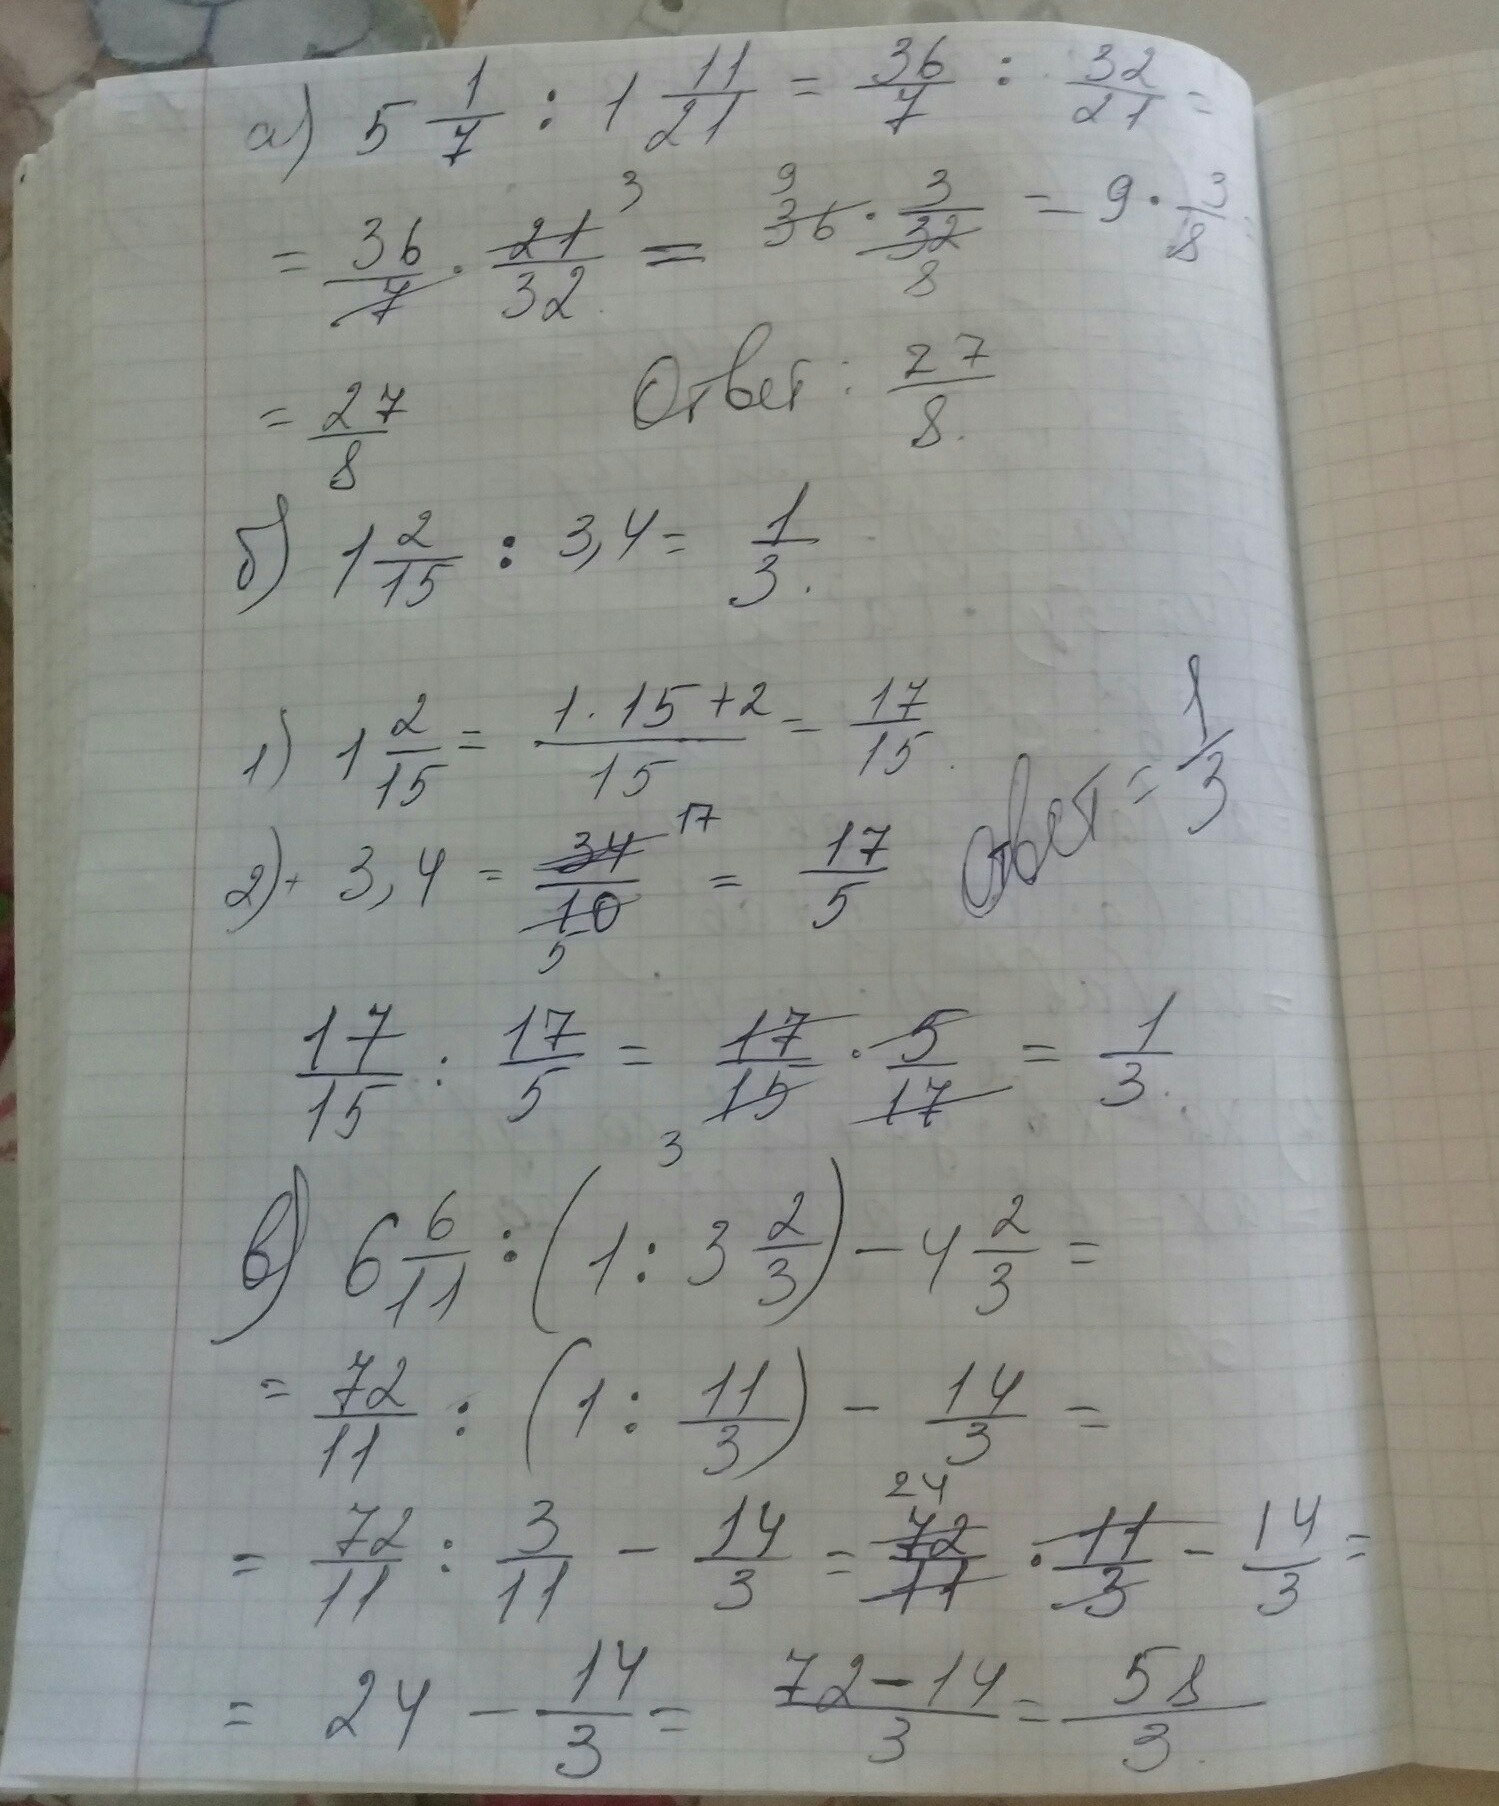 а) 5 1/7 : 1 11/21 = 36/7 : 32/21 =
= 36/7 · 21/32 3 = 9 36 · 3/32 8 = 9 · 3/8 =
= 27/8 Ответ: 27/8.
б) 1 2/15 : 3,4 = 1/3.
1) 1 2/15 = 1·15+2/15 = 17/15.
2) 3,4 = 34/10 17 5 = 17/5 Ответ = 1/3
17/15 : 17/5 = 17/15 · 5/17 = 1/3.
3
в) 6 6/11 : (1 : 3 2/3) - 4 2/3 =
= 72/11 : (1 : 11/3) - 14/3 =
= 72/11 : 3/11 - 14/3 = 24 72/11 · 11/3 - 14/3 =
= 24 - 14/3 = 72-14/3 = 58/3.